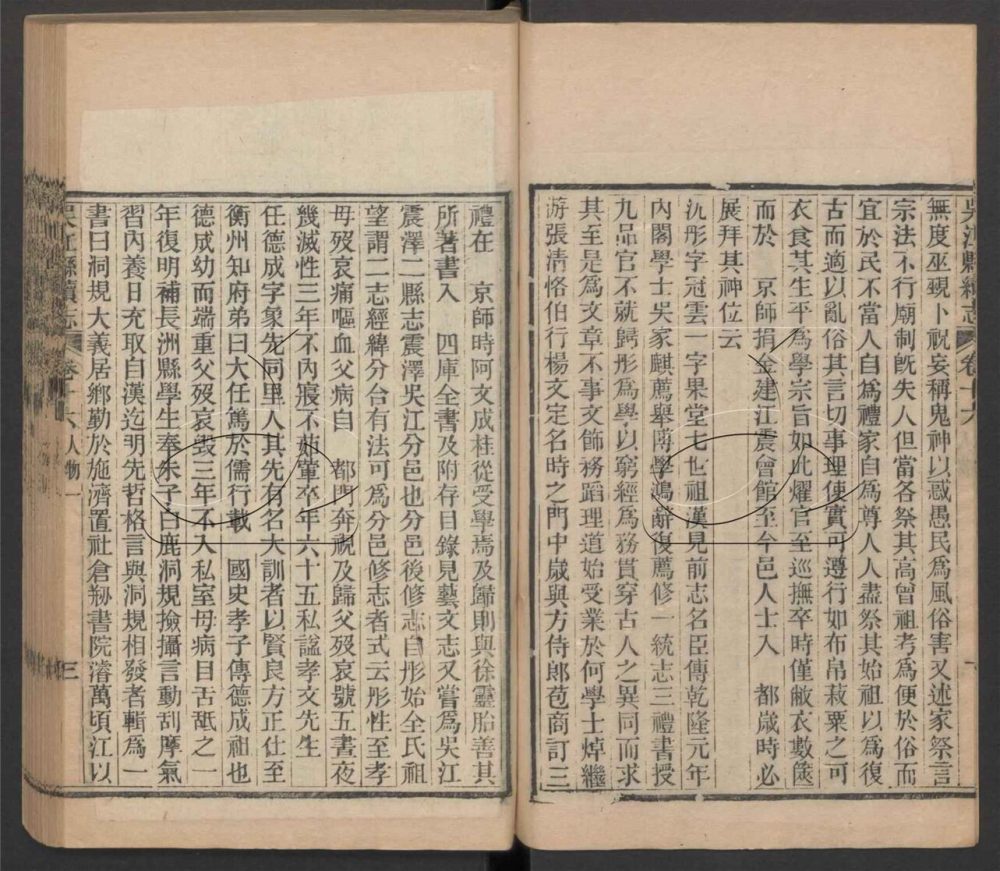 吳江縣續志
卷十六
無度巫覡卜祝妄稱鬼神以惑愚民為風俗害又述家祭言
宗法不行廟制旣失人但當各祭其高曾祖考為便於俗而
宜於民不當人自為禮家自為尊人人盡祭其始祖以為復
古而適以亂俗其言切事理使實可遵行如布帛菽粟之可
衣食其生平為學宗旨如此燿官至巡撫卒時僅敝衣數篋
而於 京師捐金建江震會館至今邑人士入 都歲時必
展拜其神位云
沈彤字冠雲一字果堂七世祖漢見前志名臣傳乾隆元年
內閣學士吳家麒薦舉博學鴻辭復薦修一統志三禮書授
九品官不就歸彤為學以窮經為務貫穿古人之異同而求
其至是為文章不事文飾務蹈理道始受業於何學士焯繼
游張清恪伯行楊文定名時之門中歲與方侍郎苞商訂三
禮在 京師時阿文成桂從受學焉及歸則與徐靈胎善其
所著書入 四庫全書及附存目錄見藝文志又嘗為吳江
震澤二縣志震澤吳江分邑也分邑後修志自彤始全氏祖
望謂二志經緯分合有法可為分邑修志者式云彤性至孝
母歿哀痛嘔血父病自 都門奔視及歸父歿哀號五晝夜
幾滅性三年不內寢不茹葷卒年六十五私諡孝文先生
任德成字象先同里人其先有名大訓者以賢良方正仕至
衡州知府弟曰大任篤於儒行載 國史孝子傳德成祖也
德成幼而端重父歿哀毀三年不入私室母病目舌舐之一
年復明補長洲縣學生奉朱子白鹿洞規撿攝言動刮摩氣
習內養日充取自漢迄明先哲格言與洞規相發者輯為一
書曰洞規大義居鄉勤於施濟置社倉剏書院濬萬頃江以
吳江縣續志
卷十六人物一
三